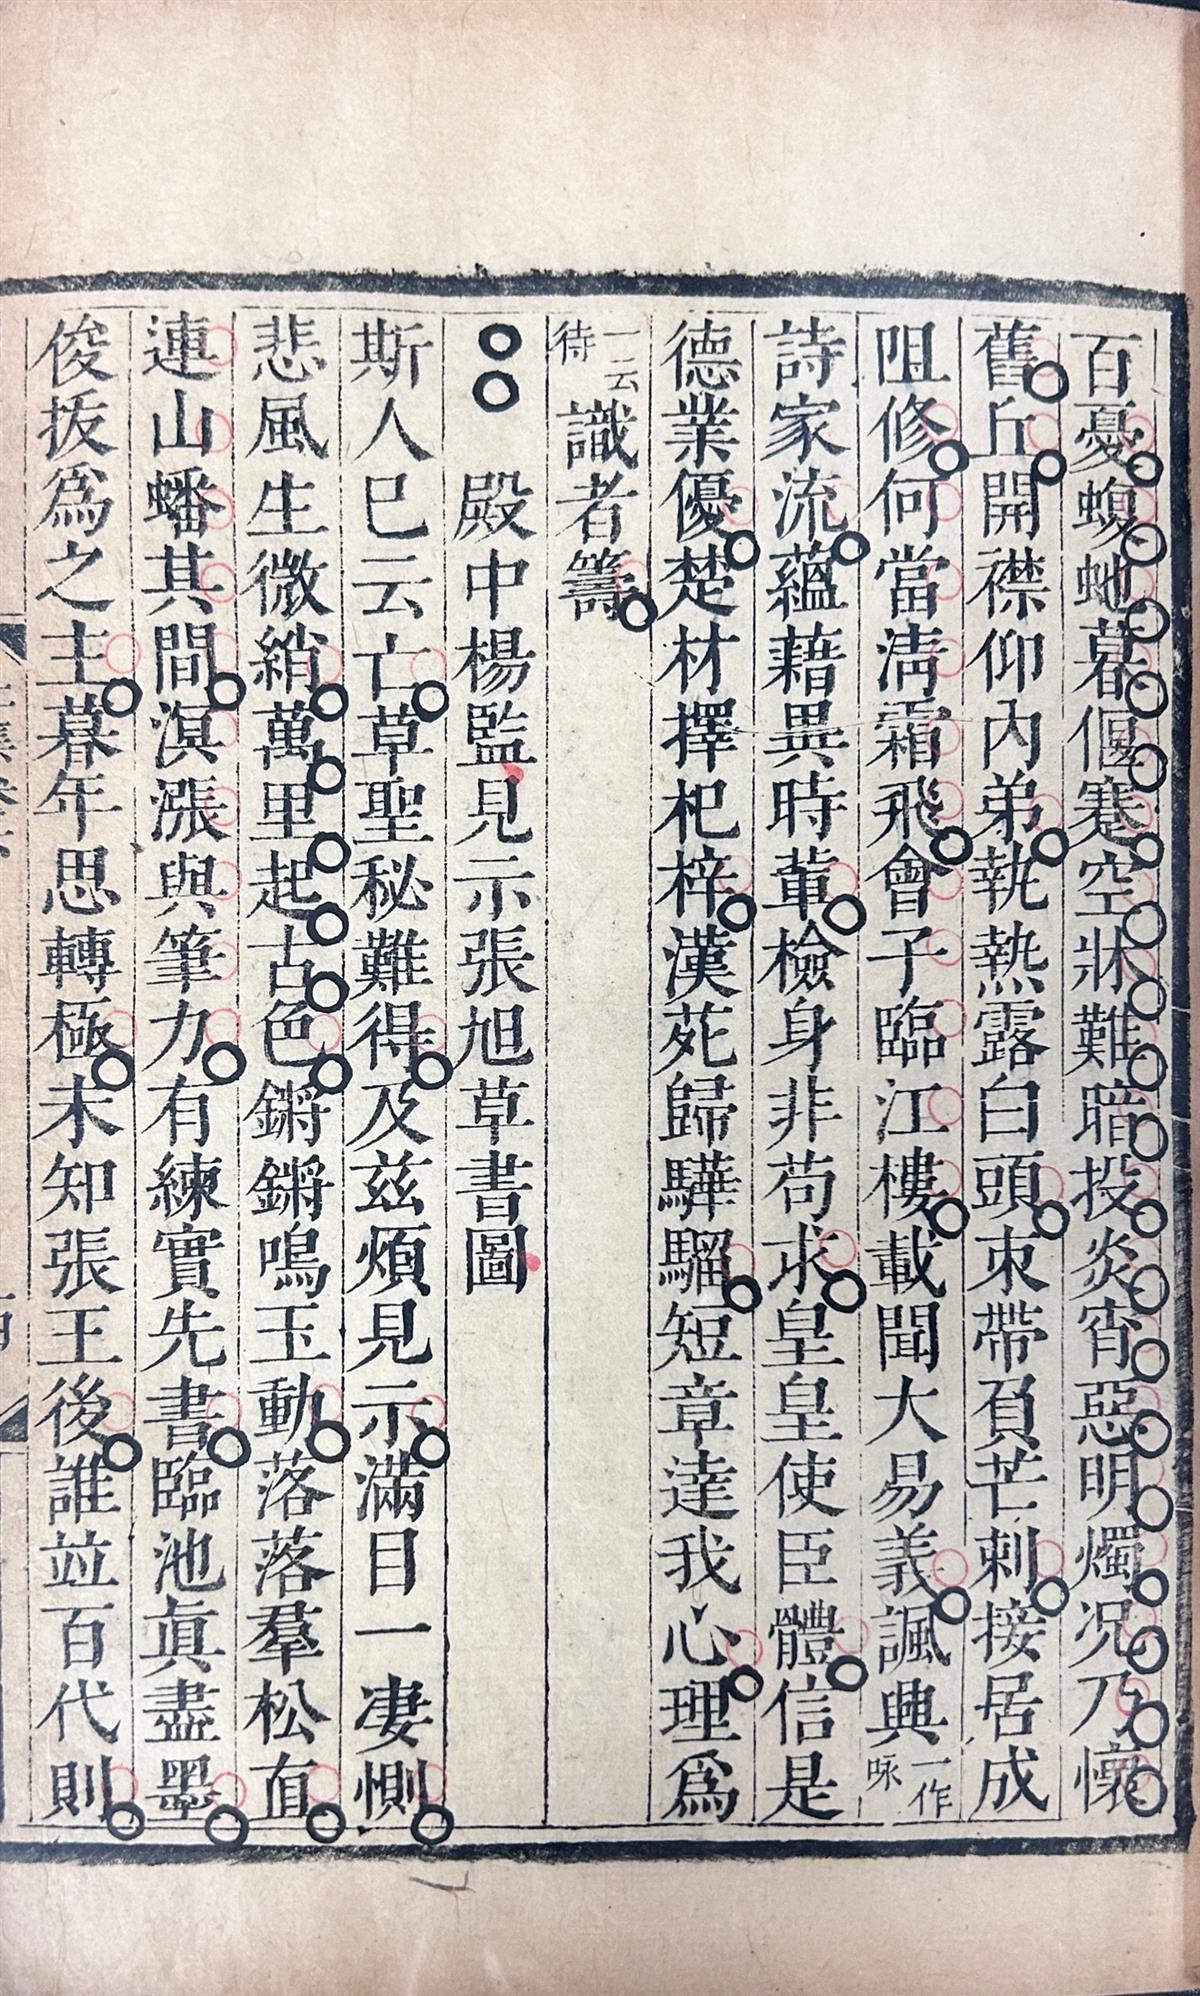 百憂蝮虵暮偃蹇空牀難暗投炎宵惡明燭况乃懷
舊丘開襟仰內弟執熱露白頭束帶負芒刺接居成
阻修何當淸霜飛會子臨江樓載聞大易義諷興一作咏
詩家流蘊藉異時輩檢身非苟求皇皇使臣體信是
德業優楚材擇杞梓漢苑歸驊騮短章達我心理爲
一云待識者籌
殿中楊監見示張旭草書圖
斯人已云亡草聖秘難得及茲煩見示滿目一凄惻
悲風生微綃萬里起古色鏘鏘鳴玉動落落羣松直
連山蟠其間溟漲與筆力有練實先書臨池眞盡墨
俊拔爲之主暮年思轉極未知張王後誰竝百代則